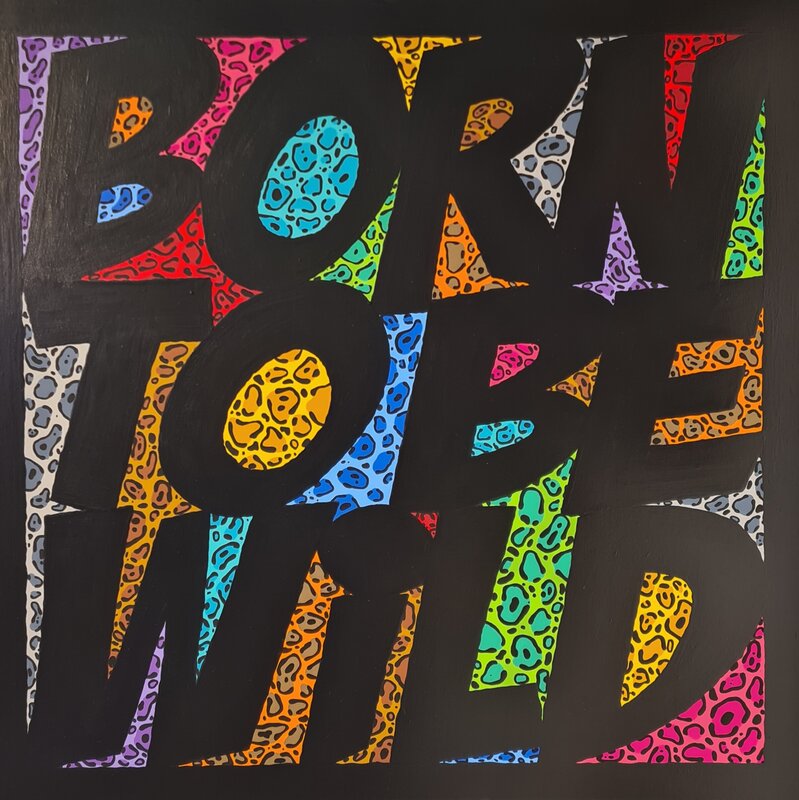 BORN
TO BE
WiLD